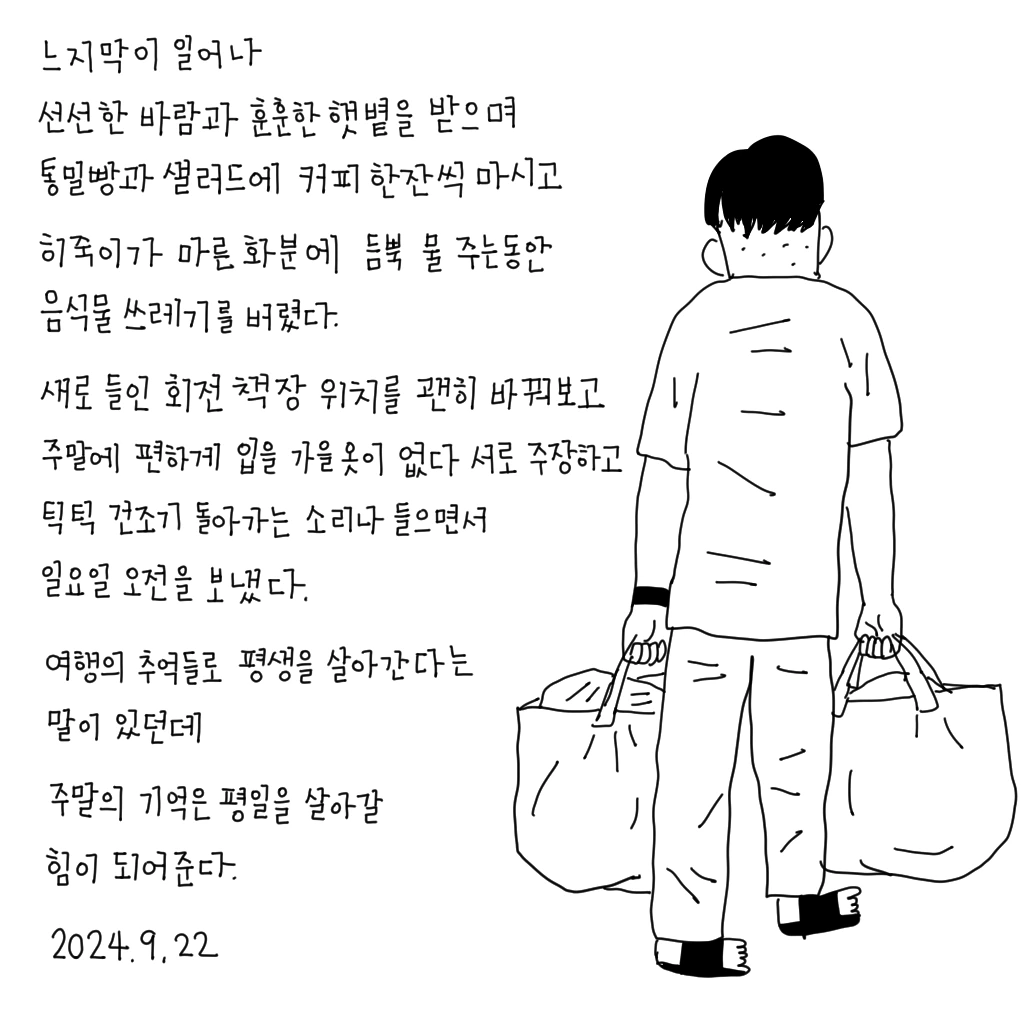 느지막이 일어나
선선한 바람과 훈훈한 햇볕을 받으며
통밀빵과 샐러드에 커피 한잔씩 마시고
히죽이가 마른 화분에 듬뿍 물 주는동안
음식물 쓰레기를 버렸다.
새로 들인 회전 책장 위치를 괜히 바꿔보고
주말에 편하게 입을 가을옷이 없다 서로 주장하고
틱틱 건조기 돌아가는 소리나 들으면서
일요일 오전을 보냈다.
여행의 추억들로 평생을 살아간다는
말이 있던데
주말의 기억은 평일을 살아갈
힘이 되어준다.
2024.9.22